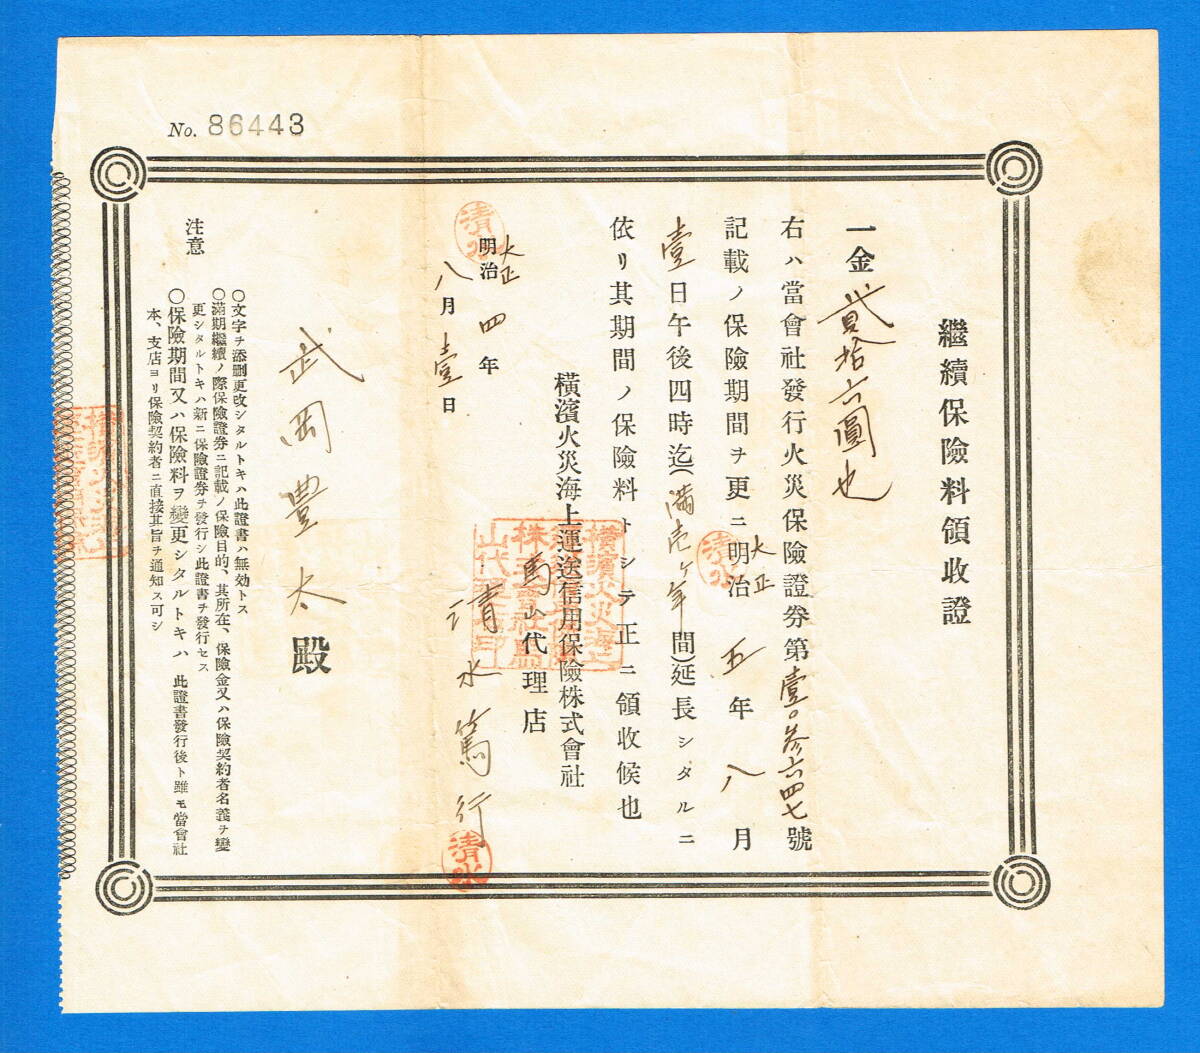 No. 86443
繼續保險料領收證
一金貳拾六圓也
右ハ當會社發行火災保險證券第壹〇參六四七號
記載ノ保險期間ヲ更ニ明治大正五年八月
壹日午後四時迄(滿壱ヶ年間)延長シタルニ
依リ其期間ノ保險料トシテ正ニ領收候也
橫濱火災海上運送信用保險株式會社
馬山代理店
清水篤行
清水
明治大正四年
八月壹日
清水
清水
武岡豐太殿
注意
○文字ヲ添刪更改シタルトキハ此證書ハ無効トス
○滿期繼續ノ際保險證券ニ記載ノ保險目的、其所在、保險金又ハ保險契約者名義ヲ變
更シタルトキハ新ニ保險證券ヲ發行シ此證書ヲ發行セス
○保險期間又ハ保險料ヲ變更シタルトキハ此證書發行後ト雖モ當會社
本、支店ヨリ保險契約者ニ直接其旨ヲ通知ス可シ